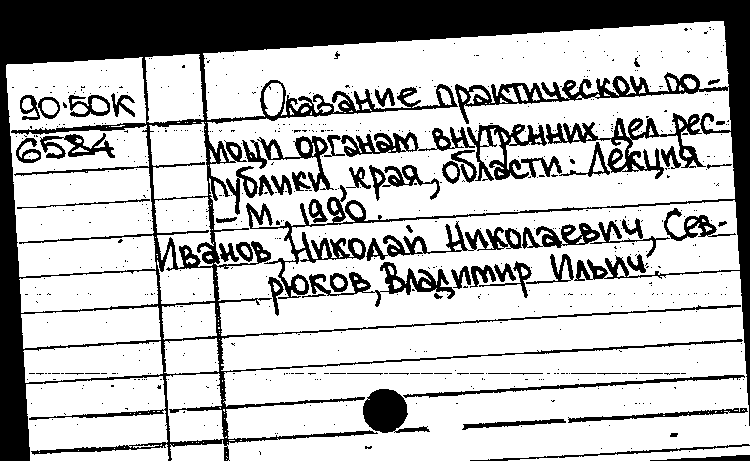 90-50К
6584
Оказание практической по-
мощи органам внутренних дел рес-
публики, края, области: Лекция
— М., 1990.
Иванов, Николай Николаевич, Сев-
рюков, Владимир Ильич